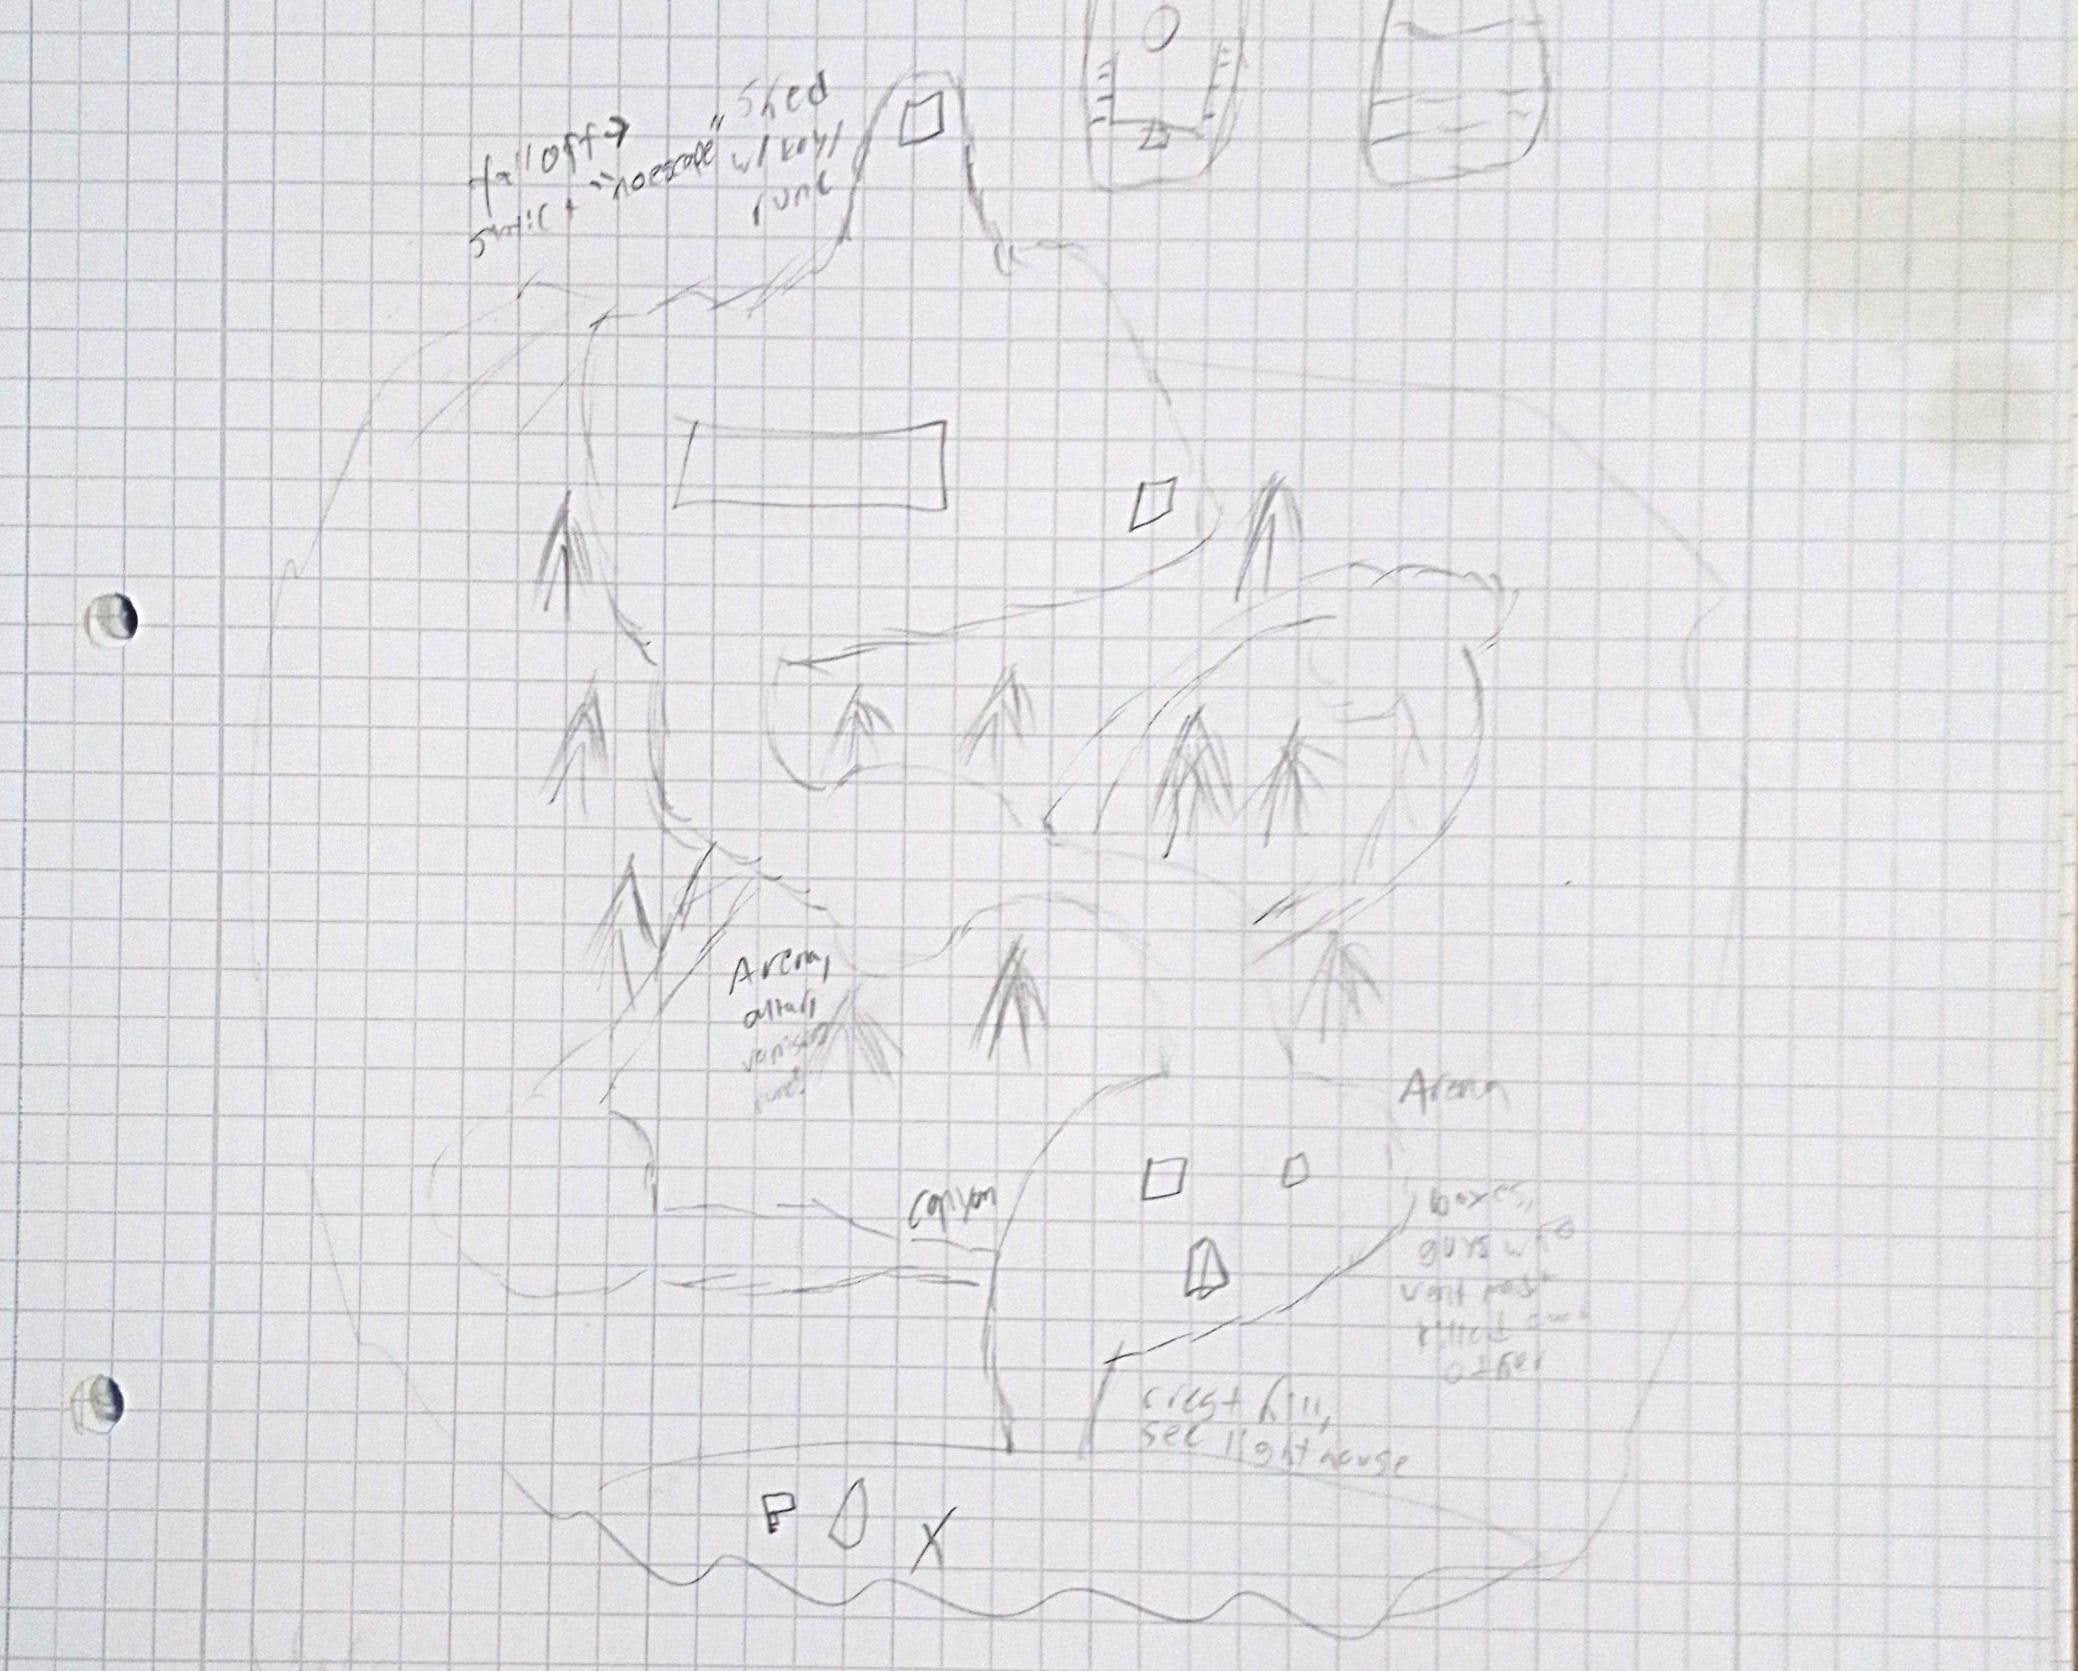 fall off →
static + "no escape"
Shed
w/ key/
rune
Arena,
altar,
rune?
canyon
Arena
boxes,
guys w
vent
killed
other
crest hill,
see lighthouse
X